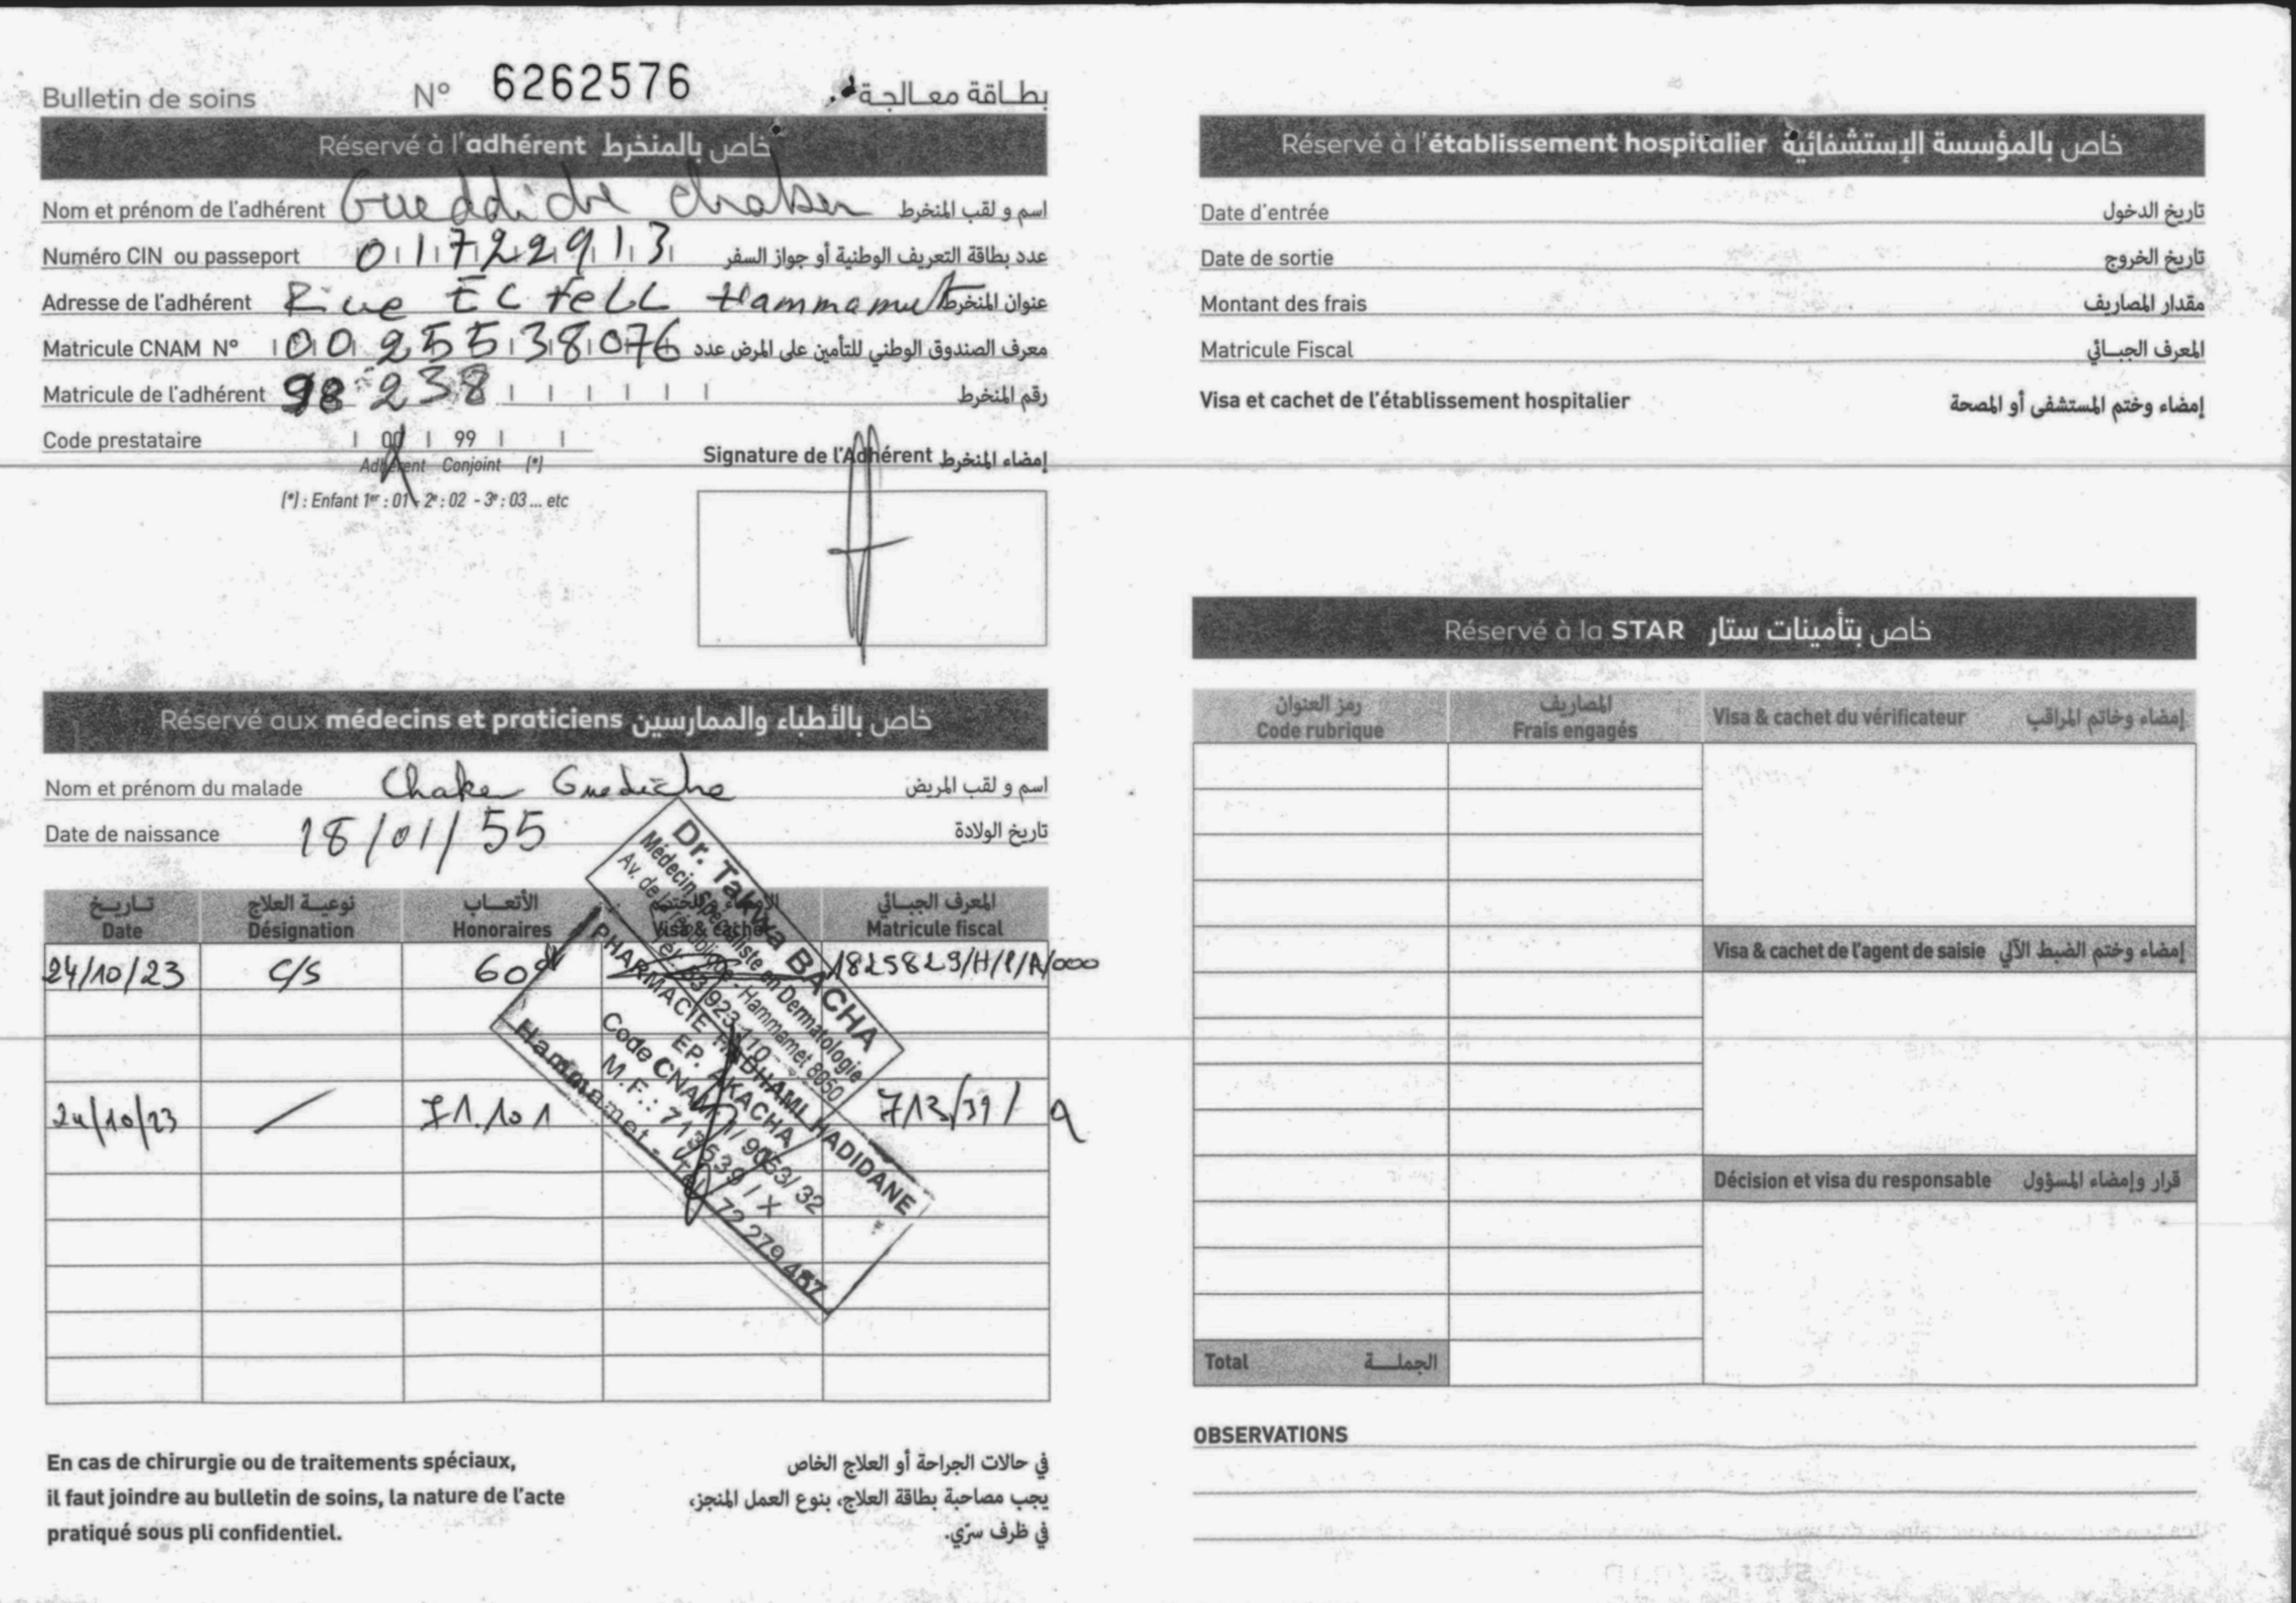 Bulletin de soins N° 6262576 بطاقة معالجة
Réservé à l'adhérent خاص بالمنخرط
Nom et prénom de l'adhérent Gueddiche Chaker اسم و لقب المنخرط
Numéro CIN ou passeport 01722913 عدد بطاقة التعريف الوطنية أو جواز السفر
Adresse de l'adhérent Rue Hammamet عنوان المنخرط
Matricule CNAM N° 00 255 38076 معرف الصندوق الوطني للتأمين على المرض عدد
Matricule de l'adhérent 98 238 رقم المنخرط
Code prestataire 00 99
Adhérent Conjoint (*)
(*) : Enfant 1er : 01 - 2e : 02 - 3e : 03 ... etc
Signature de l'Adhérent إمضاء المنخرط
Réservé aux médecins et praticiens خاص بالأطباء والممارسين
Nom et prénom du malade Chaker Guediche اسم و لقب المريض
Date de naissance 18/01/55 تاريخ الولادة
تاريخ نوعية العلاج الأتعاب الإمضاء والختم المعرف الجبائي
Date Désignation Honoraires Visa & cachet Matricule fiscal
24/10/23 C/S 60d 1825829/H/P/A/000
24/10/23 71.101
Dr. Takwa BACHA
Médecin Spécialiste en Dermatologie
Av. de la République - Hammamet 8050
PHARMACIE HADIDANE
EP. AKACHA
Code CNAM
M.F.: 713539 / X
Hammamet - Tél 72 279 487
En cas de chirurgie ou de traitements spéciaux,
il faut joindre au bulletin de soins, la nature de l'acte
pratiqué sous pli confidentiel.
في حالات الجراحة أو العلاج الخاص
يجب مصاحبة بطاقة العلاج، بنوع العمل المنجز،
في ظرف سرّي.
Réservé à l'établissement hospitalier خاص بالمؤسسة الإستشفائية
Date d'entrée تاريخ الدخول
Date de sortie تاريخ الخروج
Montant des frais مقدار المصاريف
Matricule Fiscal المعرف الجبائي
Visa et cachet de l'établissement hospitalier إمضاء وختم المستشفى أو المصحة
Réservé à la STAR خاص بتأمينات ستار
رمز العنوان المصاريف
Code rubrique Frais engagés Visa & cachet du vérificateur إمضاء وخاتم المراقب
Visa & cachet de l'agent de saisie إمضاء وختم الضبط الآلي
Décision et visa du responsable قرار وإمضاء المسؤول
Total الجملة
OBSERVATIONS